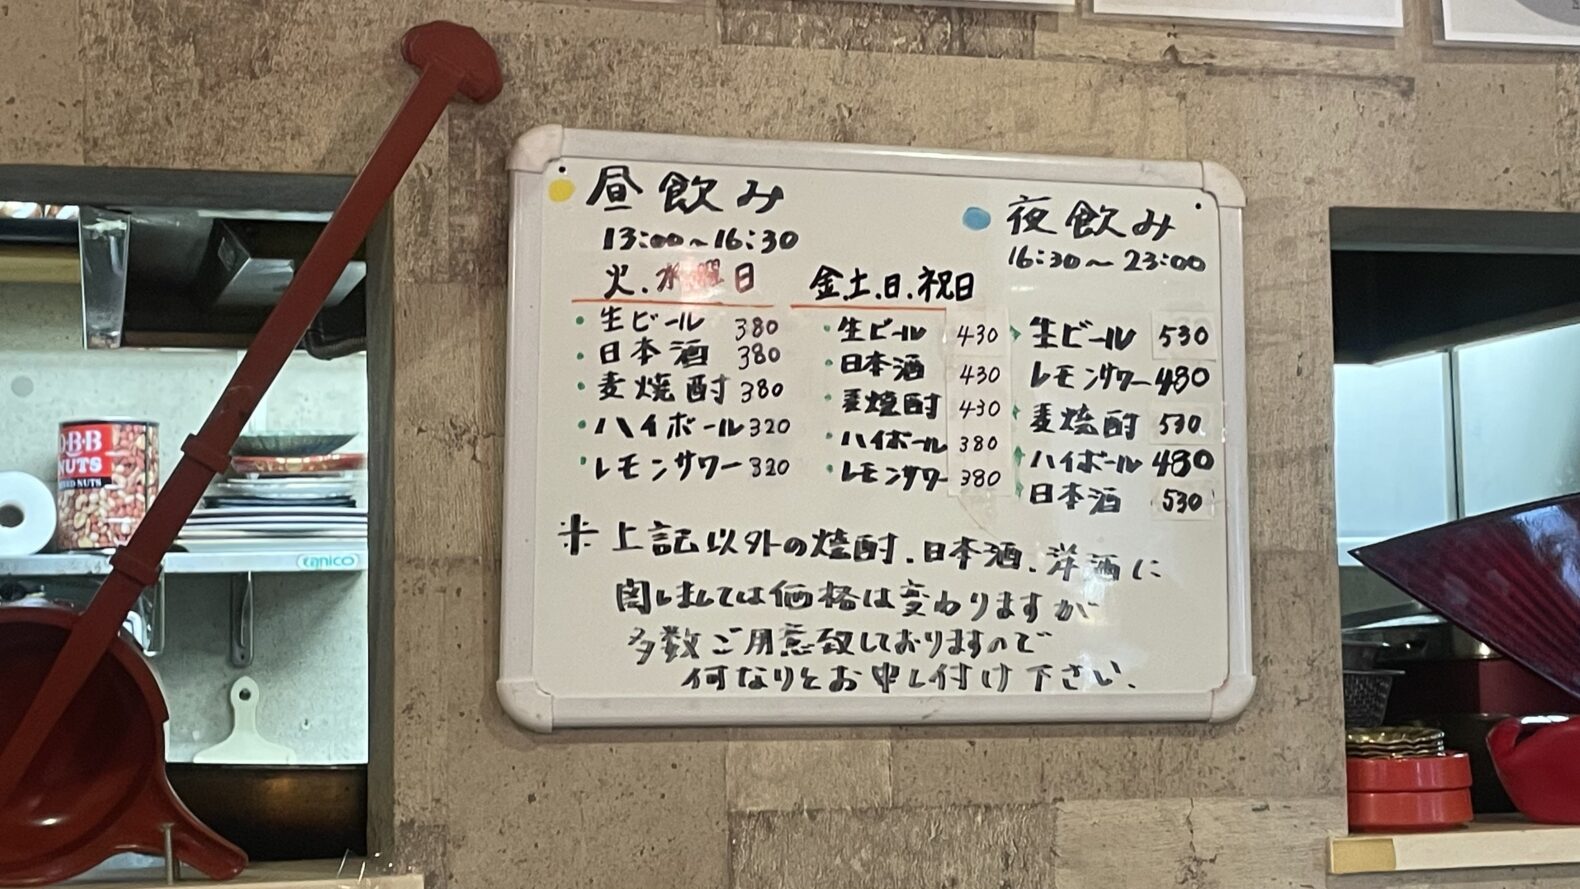 昼飲み
13:00〜16:30
火.水曜日
・生ビール 380
・日本酒 380
・麦焼酎 380
・ハイボール 320
・レモンサワー 320
金.土.日.祝日
・生ビール 430
・日本酒 430
・麦焼酎 430
・ハイボール 380
・レモンサワー 380
夜飲み
16:30〜23:00
・生ビール 530
レモンサワー 480
・麦焼酎 530
・ハイボール 480
・日本酒 530
※上記以外の焼酎.日本酒.洋酒に
関しましては価格は変わりますが
多数ご用意致しておりますので
何なりとお申し付け下さい.
NUTS
canico